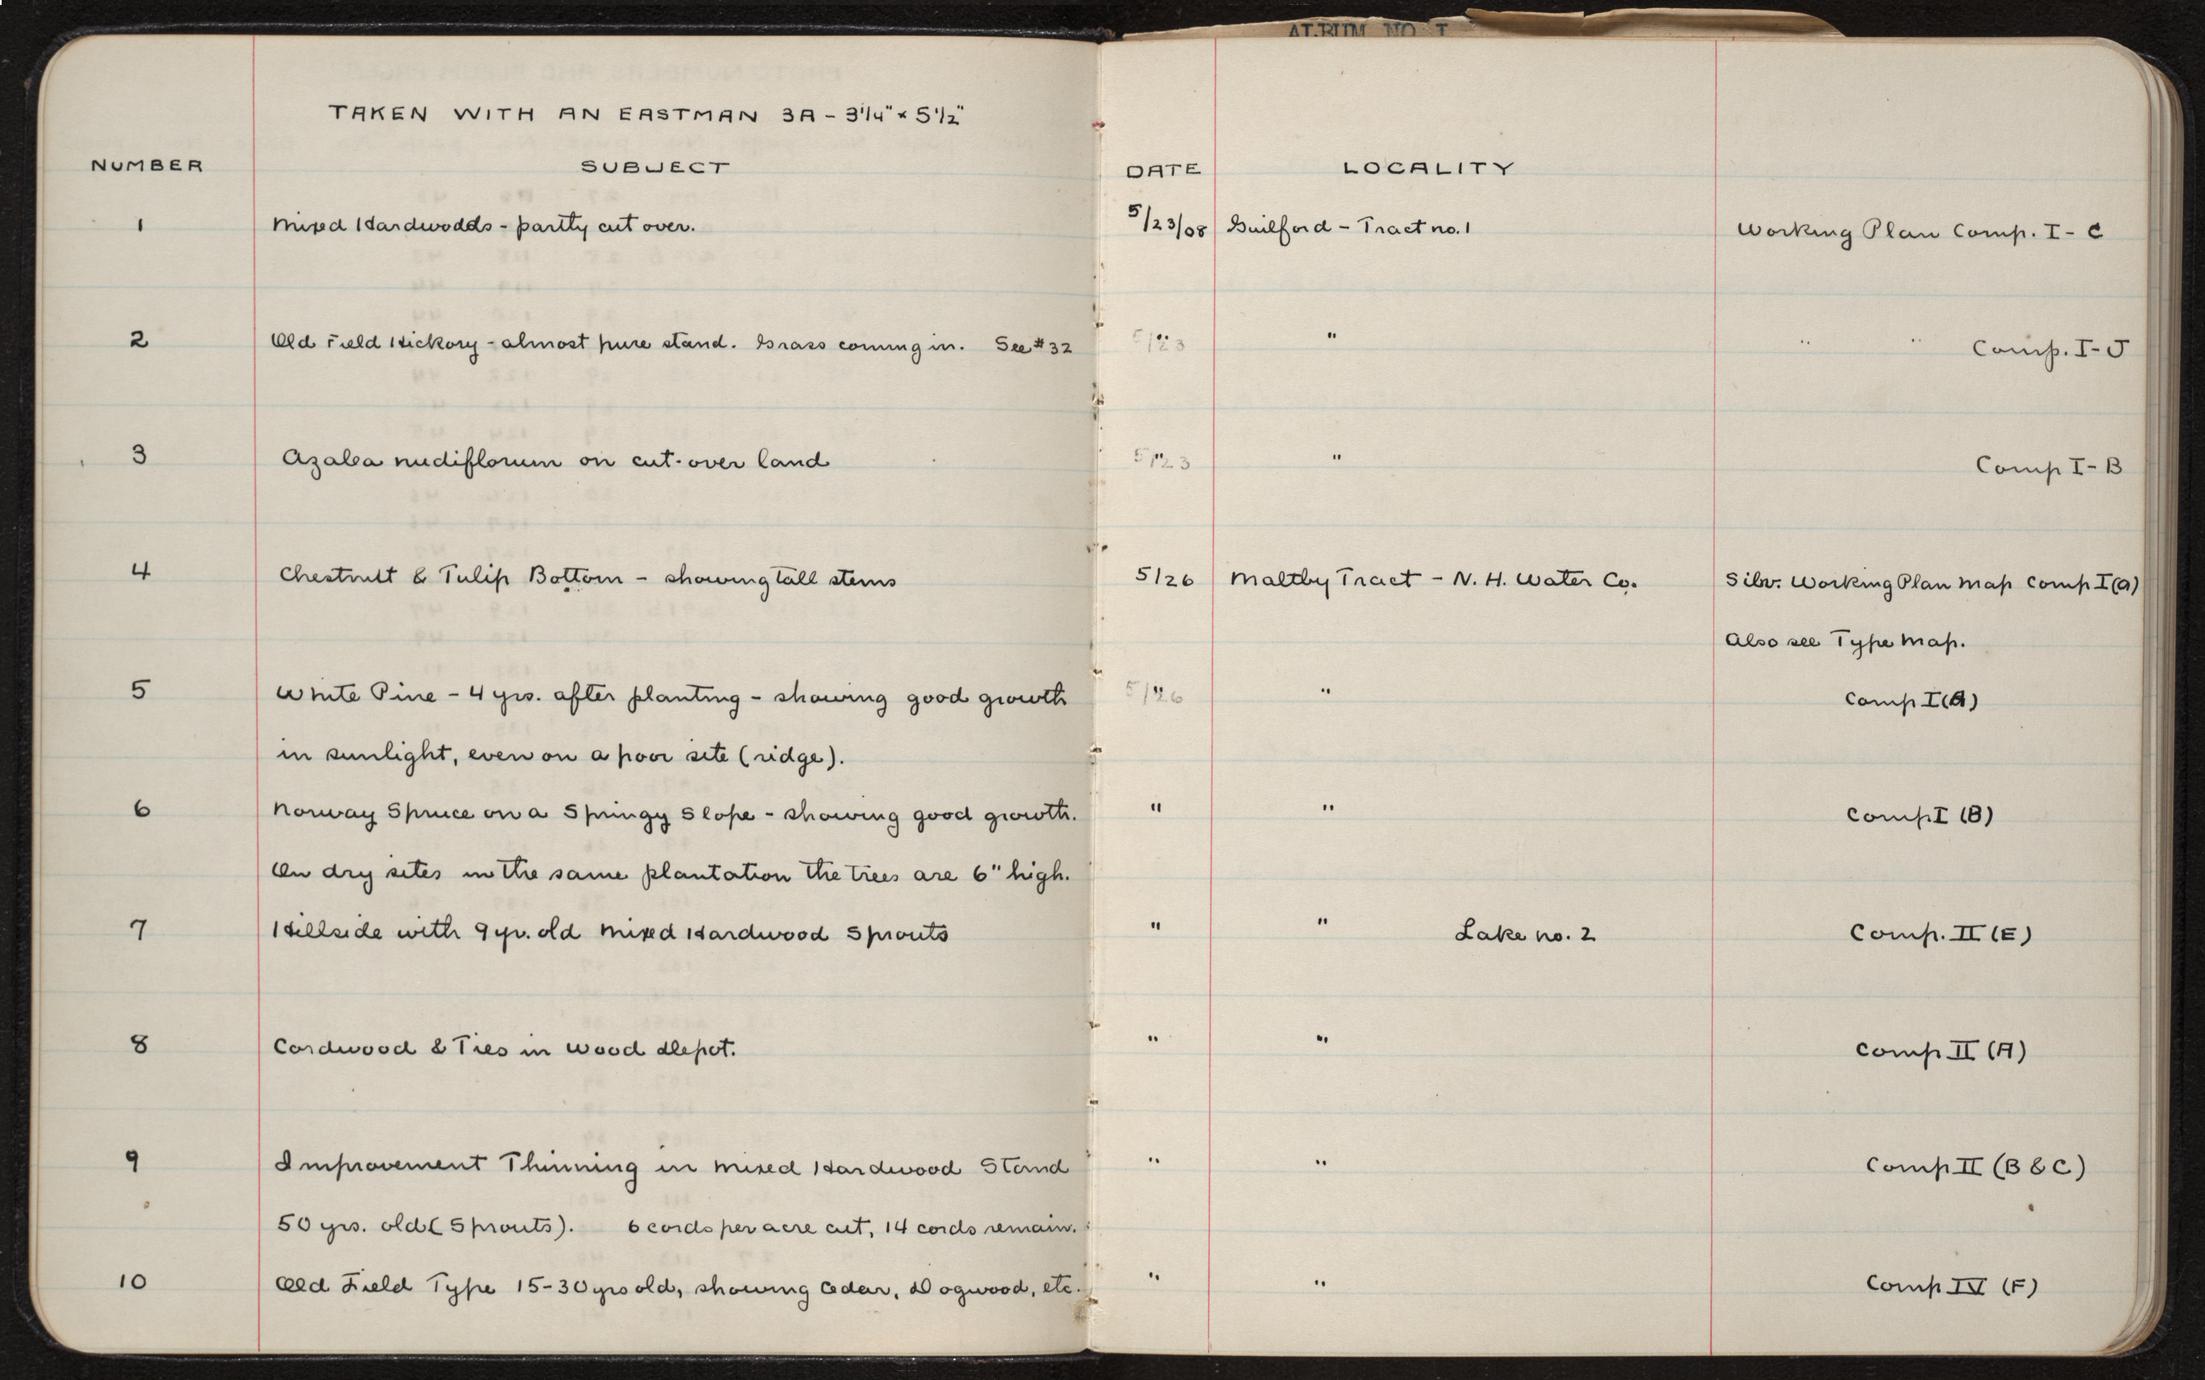 ALBUM NO. I
TAKEN WITH AN EASTMAN 3A - 3 1/4" x 5 1/2"
NUMBER SUBJECT DATE LOCALITY
1 Mixed Hardwoods - partly cut over. 5/23/08 Guilford - Tract no. 1 Working Plan Comp. I - C
2 Old Field Hickory - almost pure stand. Grass coming in. See #32 5/23 " " " Comp. I - J
3 Azalea nudiflorum on cut-over land 5/23 " Comp I - B
4 Chestnutt & Tulip Bottom - showing tall stems 5/26 Maltby Tract - N. H. Water Co. Silv. Working Plan Map Comp I (a)
Also see Type Map.
5 White Pine - 4 yrs. after planting - showing good growth 5/26 " Comp I (A)
in sunlight, even on a poor site (ridge).
6 Norway Spruce on a Springy Slope - showing good growth. " " Comp I (B)
On dry sites in the same plantation the trees are 6" high.
7 Hillside with 9 yr. old Mixed Hardwood Sprouts " " Lake no. 2 Comp. II (E)
8 Cordwood & Ties in Wood depot. " " Comp II (A)
9 Improvement Thinning in Mixed Hardwood Stand " " Comp II (B & C)
50 yrs. old (Sprouts). 6 cords per acre cut, 14 cords remain.
10 Old Field Type 15-30 yrs old, showing Cedar, Dogwood, etc. " " Comp IV (F)